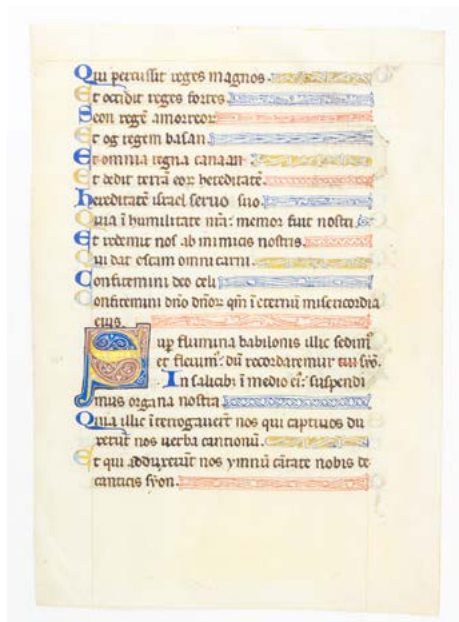 Qui percussit reges magnos.
Et occidit reges fortes.
Seon regē amorreor̄
Et og regem basan.
Et omnia regna canaan.
Et dedit terrā eor̄ hereditatē.
hereditatē israel seruo suo.
Quia ī humilitate nr̄a: memor fuit nostri
Et redemit nos ab inimicis nostris.
Qui dat escam omni carni.
Confitemini deo celi
Confitemini dn̄o dn̄or̄ qm̄ ī eternū misericordia
eius.
Sup̄ flumina babilonis illic sedim᷒
et fleuim᷒: dū recordaremur tui syō.
In salicib᷒ ī medio ei᷒: suspendi
mus organa nostra
Quia illic īterrogauerūt nos qui captiuos du
xerūt nos uerba cantionū.
Et qui adduxerūt nos ymnū cātate nobis de
canticis syon.